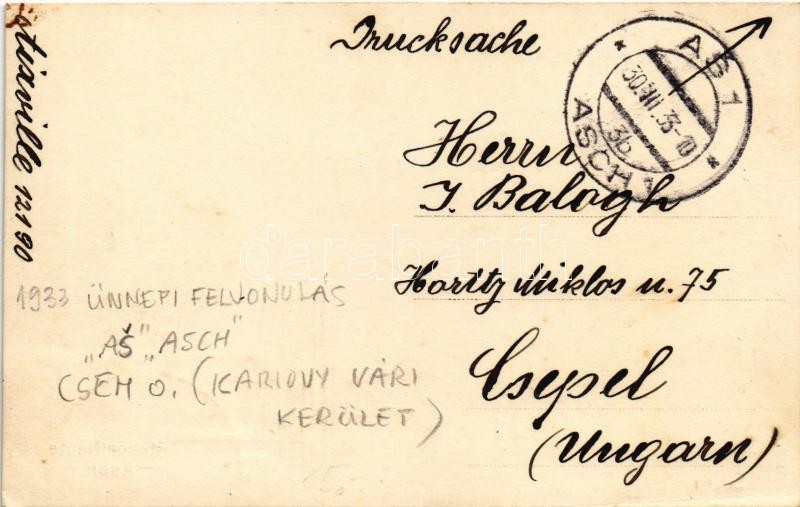 Drucksache
AŠ 1
30.VIII.33-10
3b
ASCH 1
Herrn
I. Balogh
Horthy Miklos u. 75
Csepel
(Ungarn)
12190
1933 ÜNNEPI FELVONULÁS
"AŠ" "ASCH"
CSEH O. (KARLOVY VÁRI
KERÜLET)
darabanth